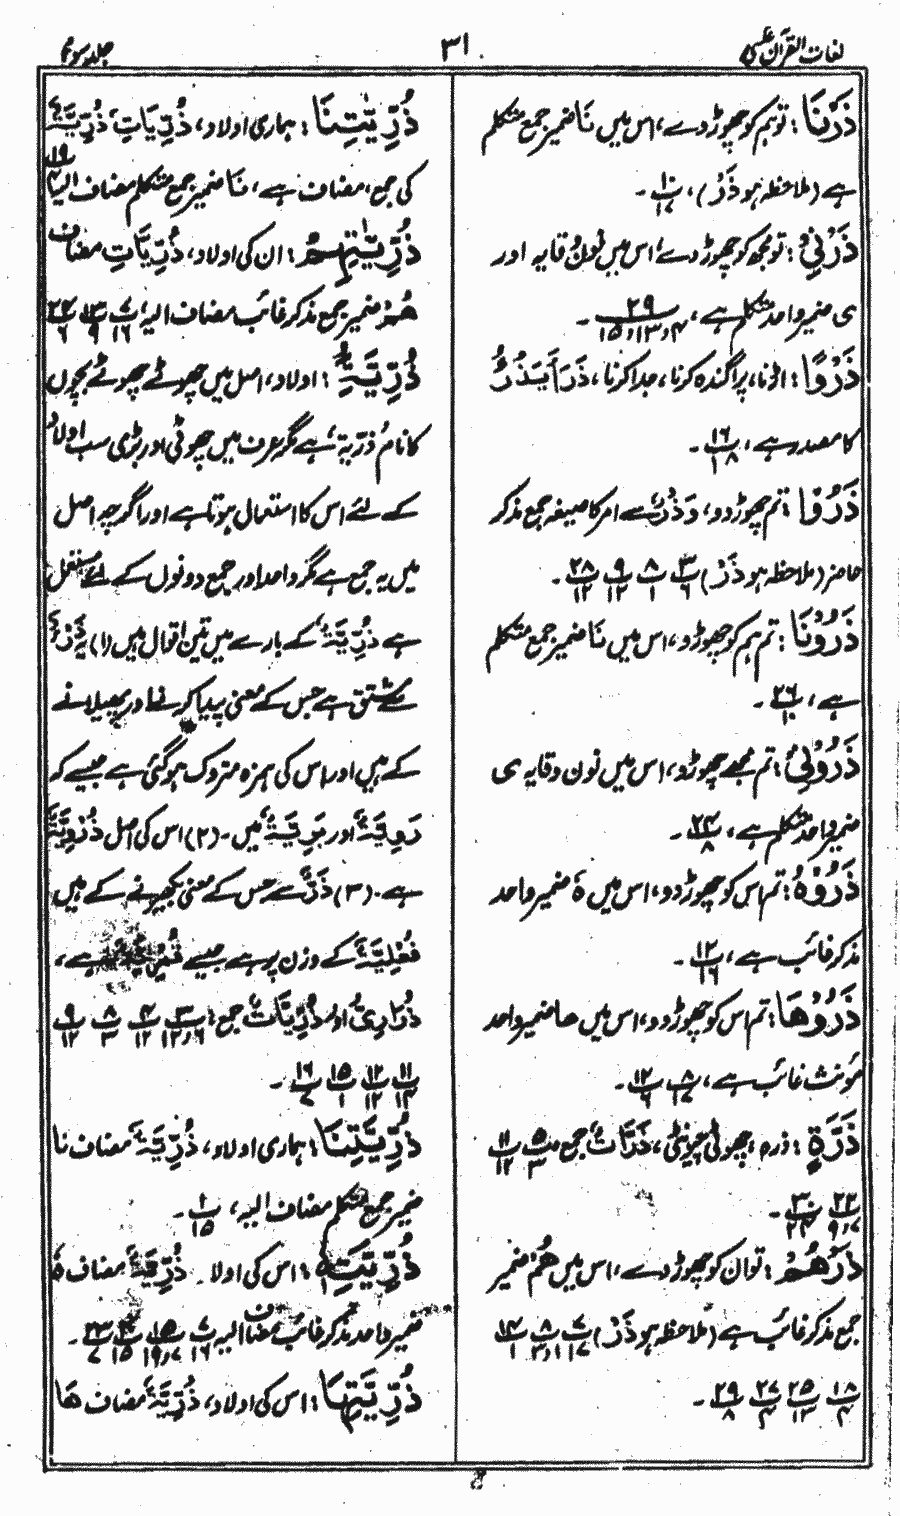 لغات القرآن
۳۱
جلد سوم
ذَرْنَا : تو ہم کو چھوڑ دے، اس میں نَا ضمیر جمع متکلم
ہے (ملاحظہ ہو ذَرْ)، ۱۰/۱۷ -
ذَرْنِیْ : تو مجھ کو چھوڑ دے، اس میں نون وقایہ اور
ی ضمیر واحد متکلم ہے، ۲۹/۴و۱۳و۱۵ -
ذَرْوًا : اڑنا، پراگندہ کرنا، جدا کرنا، ذَرَا یَذْرُوْ
کا مصدر ہے، ۲۶/۱۸ -
ذَرُوْا : تم چھوڑ دو، وَذْرٌ سے امر کا صیغہ جمع مذکر
حاضر (ملاحظہ ہو ذَرْ) ۳/۶ ۸/۱ ۹/۱۲ ۲۸/۱۲ -
ذَرُوْنَا : تم ہم کو چھوڑ دو، اس میں نَا ضمیر جمع متکلم
ہے، ۲۶/۱۰ -
ذَرُوْنِیْ : تم مجھے چھوڑ دو، اس میں نون وقایہ ی
ضمیر واحد متکلم ہے، ۲۴/۸ -
ذَرُوْهُ : تم اس کو چھوڑ دو، اس میں هُ ضمیر واحد
مذکر غائب ہے، ۱۲/۱۶ -
ذَرُوْهَا : تم اس کو چھوڑ دو، اس میں ها ضمیر واحد
مؤنث غائب ہے، ۸/۱۷ ۱۲/۶ -
ذَرَّةٍ : ذرہ، چھوٹی چیونٹی، ذَرَّاتٌ جمع ۵/۳ ۱۱/۱۲
۲۲/۷و۹ ۳۰/۲۴ -
ذَرْهُمْ : تو ان کو چھوڑ دے، اس میں هُمْ ضمیر
جمع مذکر غائب ہے (ملاحظہ ہو ذَرْ) ۷/۱۷ ۸/۱و۳ ۱۴/۱
۱۸/۴ ۲۵/۱۲ ۲۷/۴ ۲۹/۸ -
ذُرِّیّٰتِنَا : ہماری اولاد، ذُرِّیَاتِ، ذُرِّیَّةٌ
کی جمع، مضاف ہے، نَا ضمیر جمع متکلم مضاف الیہ ۱۹/۴
ذُرِّیّٰتِهِمْ : ان کی اولاد، ذُرِّیَّاتِ مضاف
هُمْ ضمیر جمع مذکر غائب مضاف الیہ، ۷/۱۶ ۱۳/۹ ۲۴/۶
ذُرِّیَّةٌ : اولاد، اصل میں چھوٹے چھوٹے بچوں
کا نام ذریۃ ہے مگر عرف میں چھوٹی اور بڑی سب اولاد
کے لئے اس کا استعمال ہوتا ہے اور اگرچہ اصل
میں یہ جمع ہے مگر واحد اور جمع دونوں کے لئے مستعمل
ہے ذُرِّیَّةٌ کے بارے میں تین اقوال ہیں (۱) یہ ذَرْءٌ
سے مشتق ہے جس کے معنی پیدا کرنے اور پھیلانے
کے ہیں اور اس کی ہمزہ متروک ہو گئی ہے جیسے کہ
رَوِیَّةٌ اور بَرِیَّةٌ میں -(۲) اس کی اصل ذُرْوِیَّةٌ
ہے -(۳) ذَرٌّ سے جس کے معنی بکھیرنے کے ہیں
فُعْلِیَّةٌ کے وزن پر ہے جیسے قُمْرِیَّةٌ ہے،
ذَرَارِیُّ اور ذُرِّیَّاتٌ جمع : ۳/۶و۱۲و۱۳ ۴/۱۲ ۸/۳ ۹/۱۲
۱۱/۱۴ ۱۲/۱۲ ۱۵/۱ ۱۶/۷ -
ذُرِّیَّتِنَا : ہماری اولاد، ذُرِّیَّةٌ مضاف نا
ضمیر جمع متکلم مضاف الیہ، ۱/۱۵ -
ذُرِّیَّتَهٗ : اس کی اولاد - ذُرِّیَّةٌ مضاف هٗ
ضمیر واحد مذکر غائب مضاف الیہ ۷/۱۶ ۱۵/۷و۱۹ ۲۰/۱۵ ۲۳/۷ -
ذُرِّیَّتَهَا : اس کی اولاد، ذُرِّیَّةٌ مضاف هَا